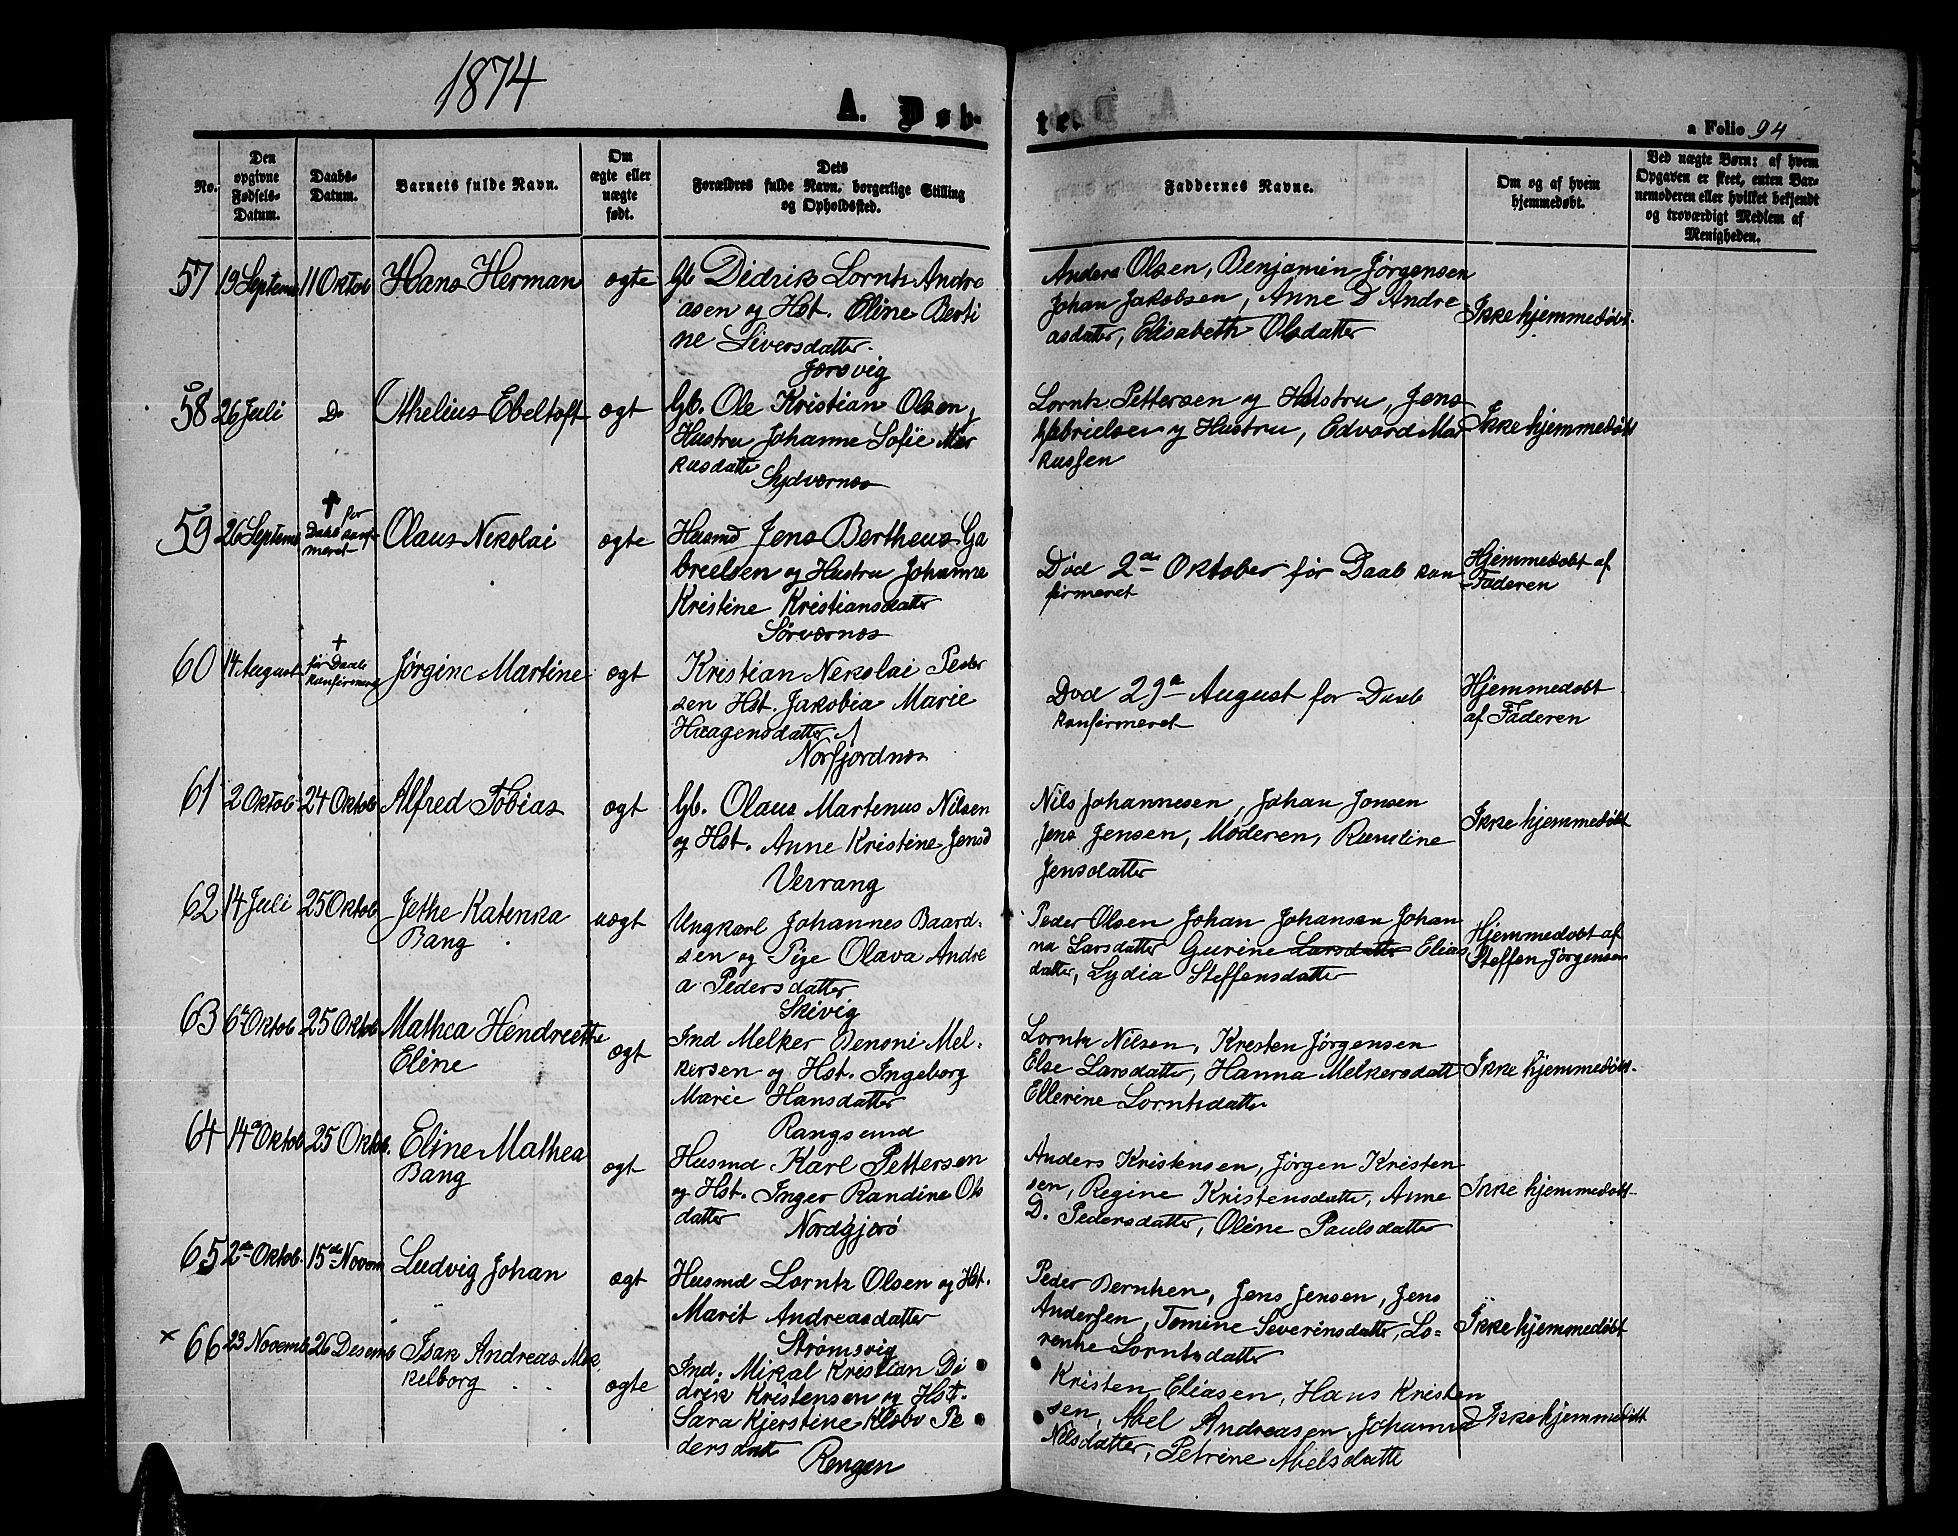 1874
A. Døb-
te.
a Folio 94
No.
Den
opgivne
Fødsels-
Datum.
Daabs-
Datum.
Barnets fulde Navn.
Om
ægte eller
uægte
født.
Dets
Forældres fulde Navn, borgerlige Stilling
og Opholdssted.
Faddernes Navne.
Om og af hvem
hjemmedøbt.
Ved uægte Børn: af hvem
Opgaven er skeet, enten Bar-
nemoderen eller hvilket bekjendt
og troværdigt Medlem af
Menigheden.
57 19 Septemb 11 Oktob Hans Herman ægte
Gb Didrik Lornts Andre
asen og Hst. Oline Berti
ne Siversdatter
Jørsvig
Anders Olsen, Benjamin Jørgensen
Johan Jakobsen, Anne D Andre
asdatter, Elisabeth Olsdatter
Ikke hjemmedøbt.
58 26 Juli Do Othelius Ebeltoft ægt
Gb. Ole Kristian Olsen,
Hustru Johanne Sofie Mar
kusdatter
Sydværnes
Lornts Pettersen og Hustru, Jens
Gabrielsen og Hustru, Edvard Mar
kussen
Ikke hjemmedøbt
59 26 Septemb † før
Daab konfir
meret
Olaus Nekolai ægte
Husmd Jens Bertheus Ga
brielsen og Hustru Johanne
Kristine Kristiansdatter
Sørværnes
Død 2den Oktober før Daab kon
firmeret
Hjemmedøbt af
Faderen
60 14 August †
før Daab
konfirmeret
Jørgine Martine ægt
Kristian Nekolai Peder
sen Hst. Jakobia Marie
Haagensdatter
Norfjordnes
Død 29de August for Daab
konfirmeret
Hjemmedøbt
af Faderen
61 2 Oktob 24 Oktob Alfred Tobias ægt
Gb. Olaus Martenus Nilsen
og Hst. Anne Kristine Jensd
Verrang
Nils Johannesen, Johan Jonsen
Jens Jensen, Moderen, Rundine
Jensdatter
Ikke hjemmedøbt
62 14 Juli 25 Oktob Jethe Katenka
Bang
uægt
Ungkarl Johannes Baard-
sen og Pige Olava Andre
a Pedersdatter
Skivig
Peder Olsen Johan Johansen Johan
na Larsdatter Gurine Larsdatter Elias
datter, Lydia Steffensdatter
Hjemmedøbt af
Steffen Jørgensen
63 6te Oktob 25 Oktob Mathea Hendreette
Eline
ægt
Ind Melker Benoni Mel-
kersen og Hst. Ingeborg
Marie Hansdatter
Rangsund
Lornts Nilsen, Kresten Jørgensen
Else Larsdatter, Hanna Melkersdatt
Ellerine Lorntsdatter
Ikke hjemmedøbt.
64 14de Oktob 25 Oktob. Eline Mathea
Bang
ægt
Husmd Karl Pettersen
og Hst. Inger Randine Ols
datter
Nordgjerø
Anders Kristensen, Jørgen Kristen
sen, Regine Kristensdatter, Anne
D. Pedersdatter, Oline Paulsdatter
Ikke hjemmedøbt
65 2de Oktob. 15de Novem Ludvig Johan ægt
Husmd Lornts Olsen og Hst.
Marit Andreasdatter
Strømsvig
Peder Bernhen, Jens Jensen, Jens
Andersen, Tomine Severinsdatter, Lo-
renhe Lorntsdatter
Ikke hjemmedøbt
× 66 23 Novemb 26 Desemb Isak Andreas Mek
kelborg
ægte
Ind. Mikal Kristian Di
drik Kristensen og Hst.
Sara Kjerstine Klebo Pe
dersdatt
Rengen
Kristen Eliasen, Hans Kristen
sen, Abel Andreasen, Johanna
Nilsdatter, Petrine Abelsdatte
Ikke hjemmedøbt